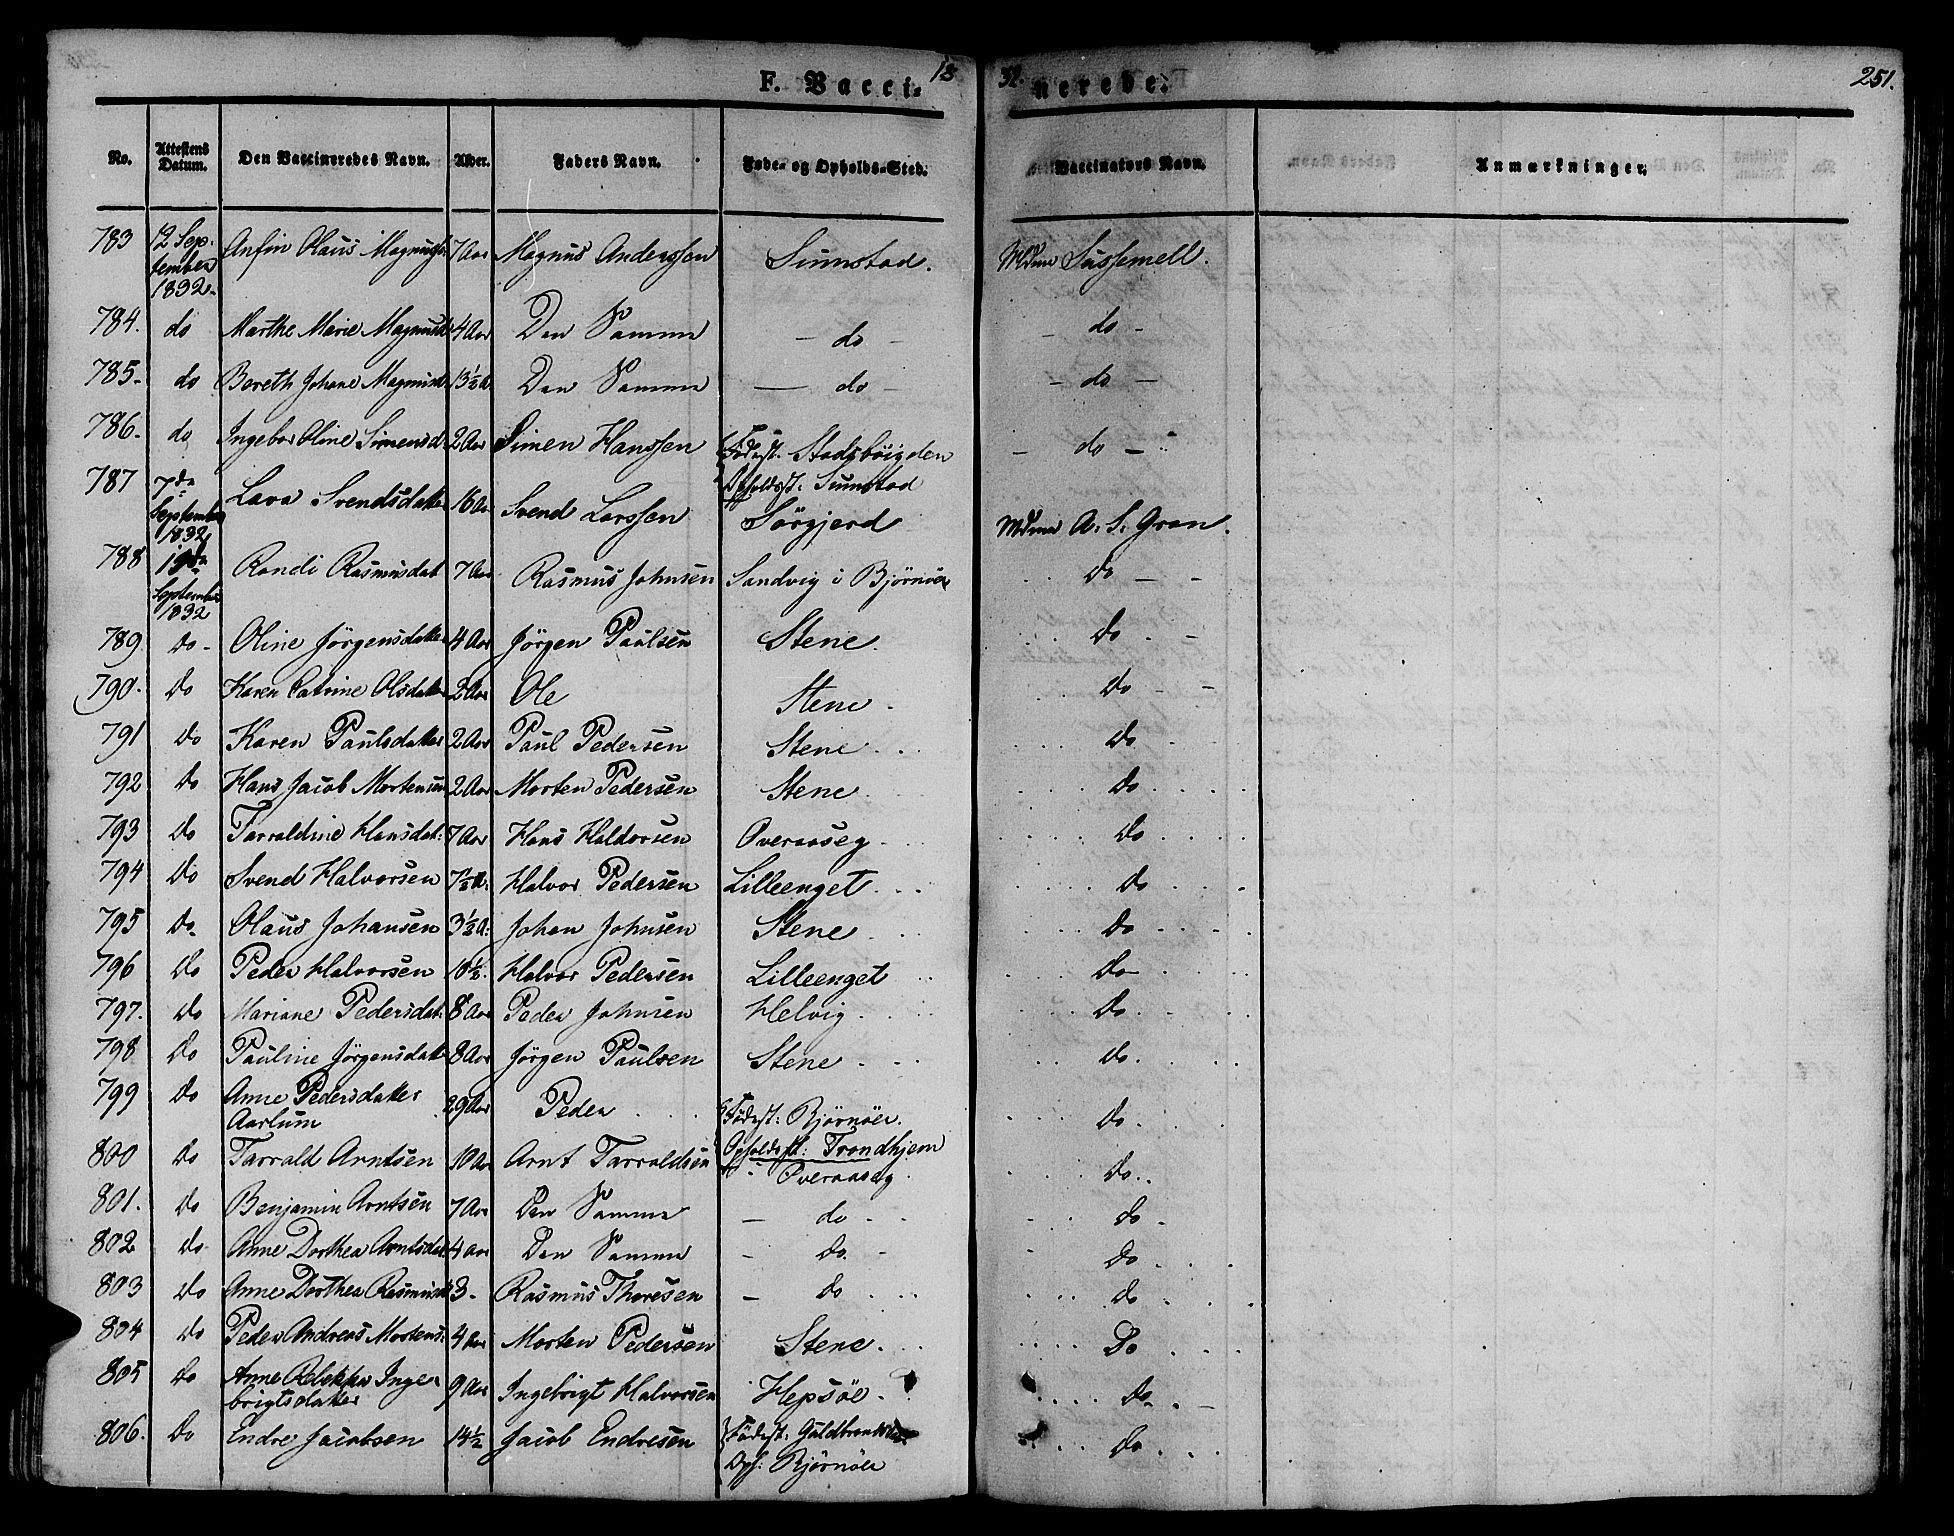 F. Vacci- 18 32. nerede. 251.
No. Attestens Datum. Den Vaccineredes Navn. Alder. Faders Navn. Føde- og Opholds-Sted. Vaccinators Navn. Anmærkninger.
783 12 September 1832. Anfin Olaus Magnuss. 7 Aar Magnus Anderssen Sunnstad. Mdme Sussemell.
784. do Marthe Marie Magnusd. 4 Aar Den Samme - do - - do -
785. do Bereth Johane Magnusd. 13½ A Den Samme - do - - do -
786. do Ingebor Oline Simensd. 2 Aar Simen Hanssen Fødest. Stadsbøigden - do -
Opholdsst: Sunnstad
787 7de September 1832 Lava Svendsdatter 16 Aar Svend Larssen Sørgjerd Mdme A. S. Gran.
788 19de September 1832 Randi Rasmusdat 7 Aar Rasmus Johnsen Sandvig i Bjørnøer Do - -
789. Do - Oline Jörgensdatter 4 Aar Jörgen Paulsen Stene. Do. -
790. Do Karen Catrine Olsdatter 2 Aar Ole Stene. Do - -
791 Do Karen Paulsdatter 2 Aar Paul Pedersen Stene. Do.
792 Do Hans Jacob Mortensen 2 Aar Morten Pedersen Stene. Do.
793 Do Tarraldine Hansdat: 7 Aar Hans Haldorsen Overaaseg. Do.
794 Do Svend Halvorsen 7½ A: Halvor Pedersen Lilleenget. Do.
795 Do. Olaus Johansen 3½ A: Johan Johnsen Stene. Do.
796 Do Peder Halvorsen 10½. Halvor Pedersen Lilleenget Do.
797. Do Mariane Pedersdat: 8 Aar Peder Johnsen Helvig. Do.
798 Do Pauline Jörgensdatt 8 Aar Jörgen Paulsen Stene. Do.
799 Do Anne Pedersdatter 29 Aar Peder Fødest: Bjørnöer. Do.
Aarlum Opholdsst: Trondhjem
800 Do Tarrald Arntsen 10 Aar Arnt Tarraldsen Overaaseg Do.
801. Do Benjamin Arntsen 7 Aar Den Samme - do - Do -
802 Do Anne Dorthea Arntsdat 4 Aar Den Samme - Do. - Do
803 Do Anne Dorthea Rasmusd 3 - Rasmus Thoresen - Do Do
804 Do Peder Andreas Mortens. 4 Aar Morten Pedersen Stene. Do
805 Do Anne Rebekka Inge- 9 Aar Ingebrigt Halvorsen Hepsöe. Do.
brigtsdatter
806. Do Endre Jacobsen 14½ Jacob Endresen Födest: Guldbrandsd. Do.
Oph: Bjørnöer